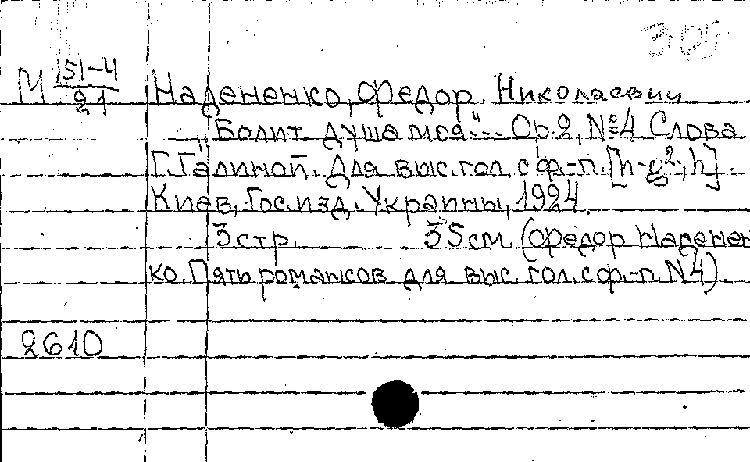 309
М 51-4/21 Надененко, Федор Николаевич
„Болит душа моя"... Ор.2, №4 Слова
Г. Галиной. Для выс. гол. с ф-п. [h-g², h].
Киев, Гос. изд. Украины, 1924
3 стр. 35 см (Федор Наденен
ко. Пять романсов для выс. гол. с ф-п. N4)
2610